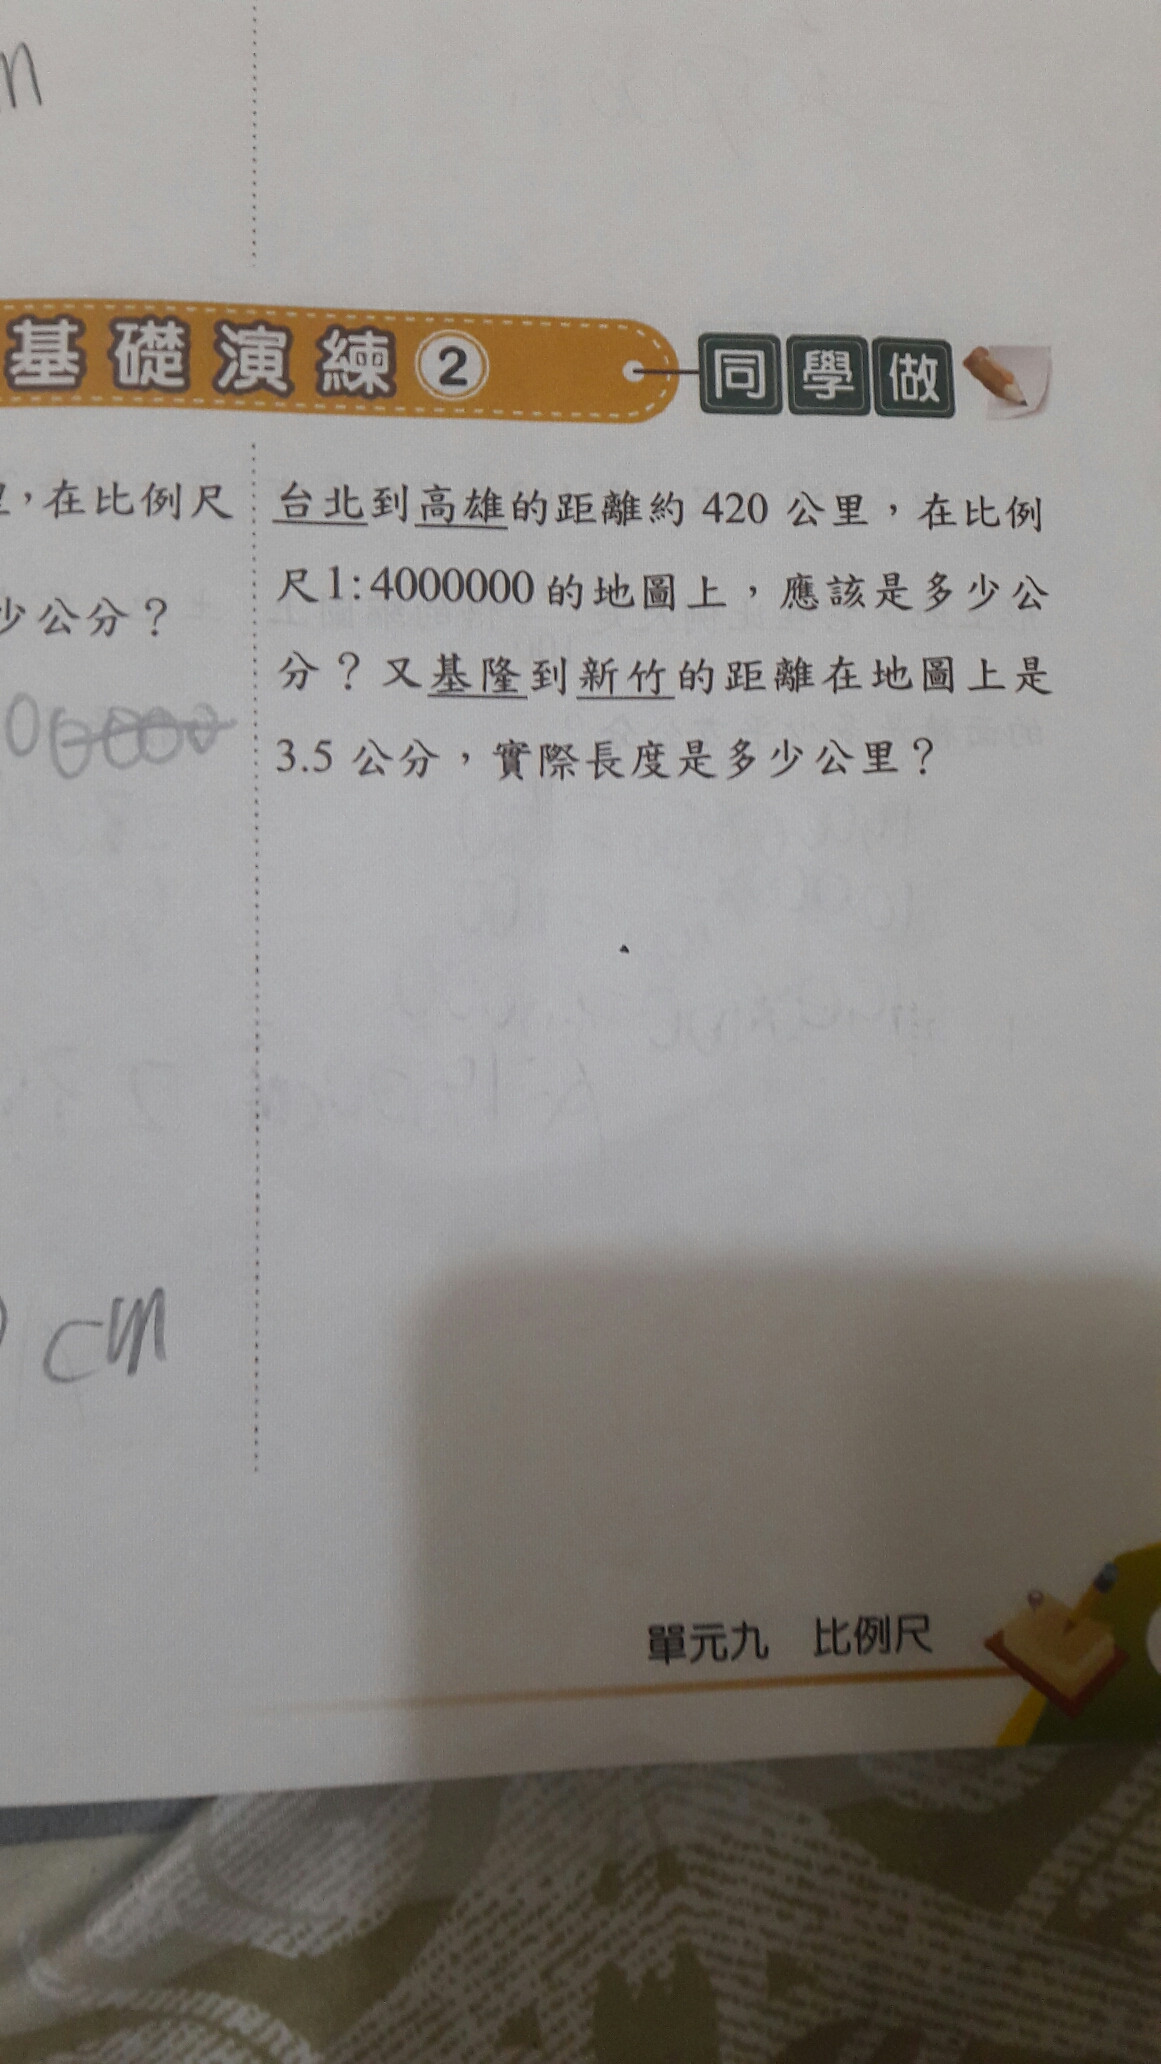 m
基礎演練② 同學做
，在比例尺
少公分？
台北到高雄的距離約 420 公里，在比例
尺1:4000000的地圖上，應該是多少公
分？又基隆到新竹的距離在地圖上是
3.5 公分，實際長度是多少公里？
cm
單元九 比例尺